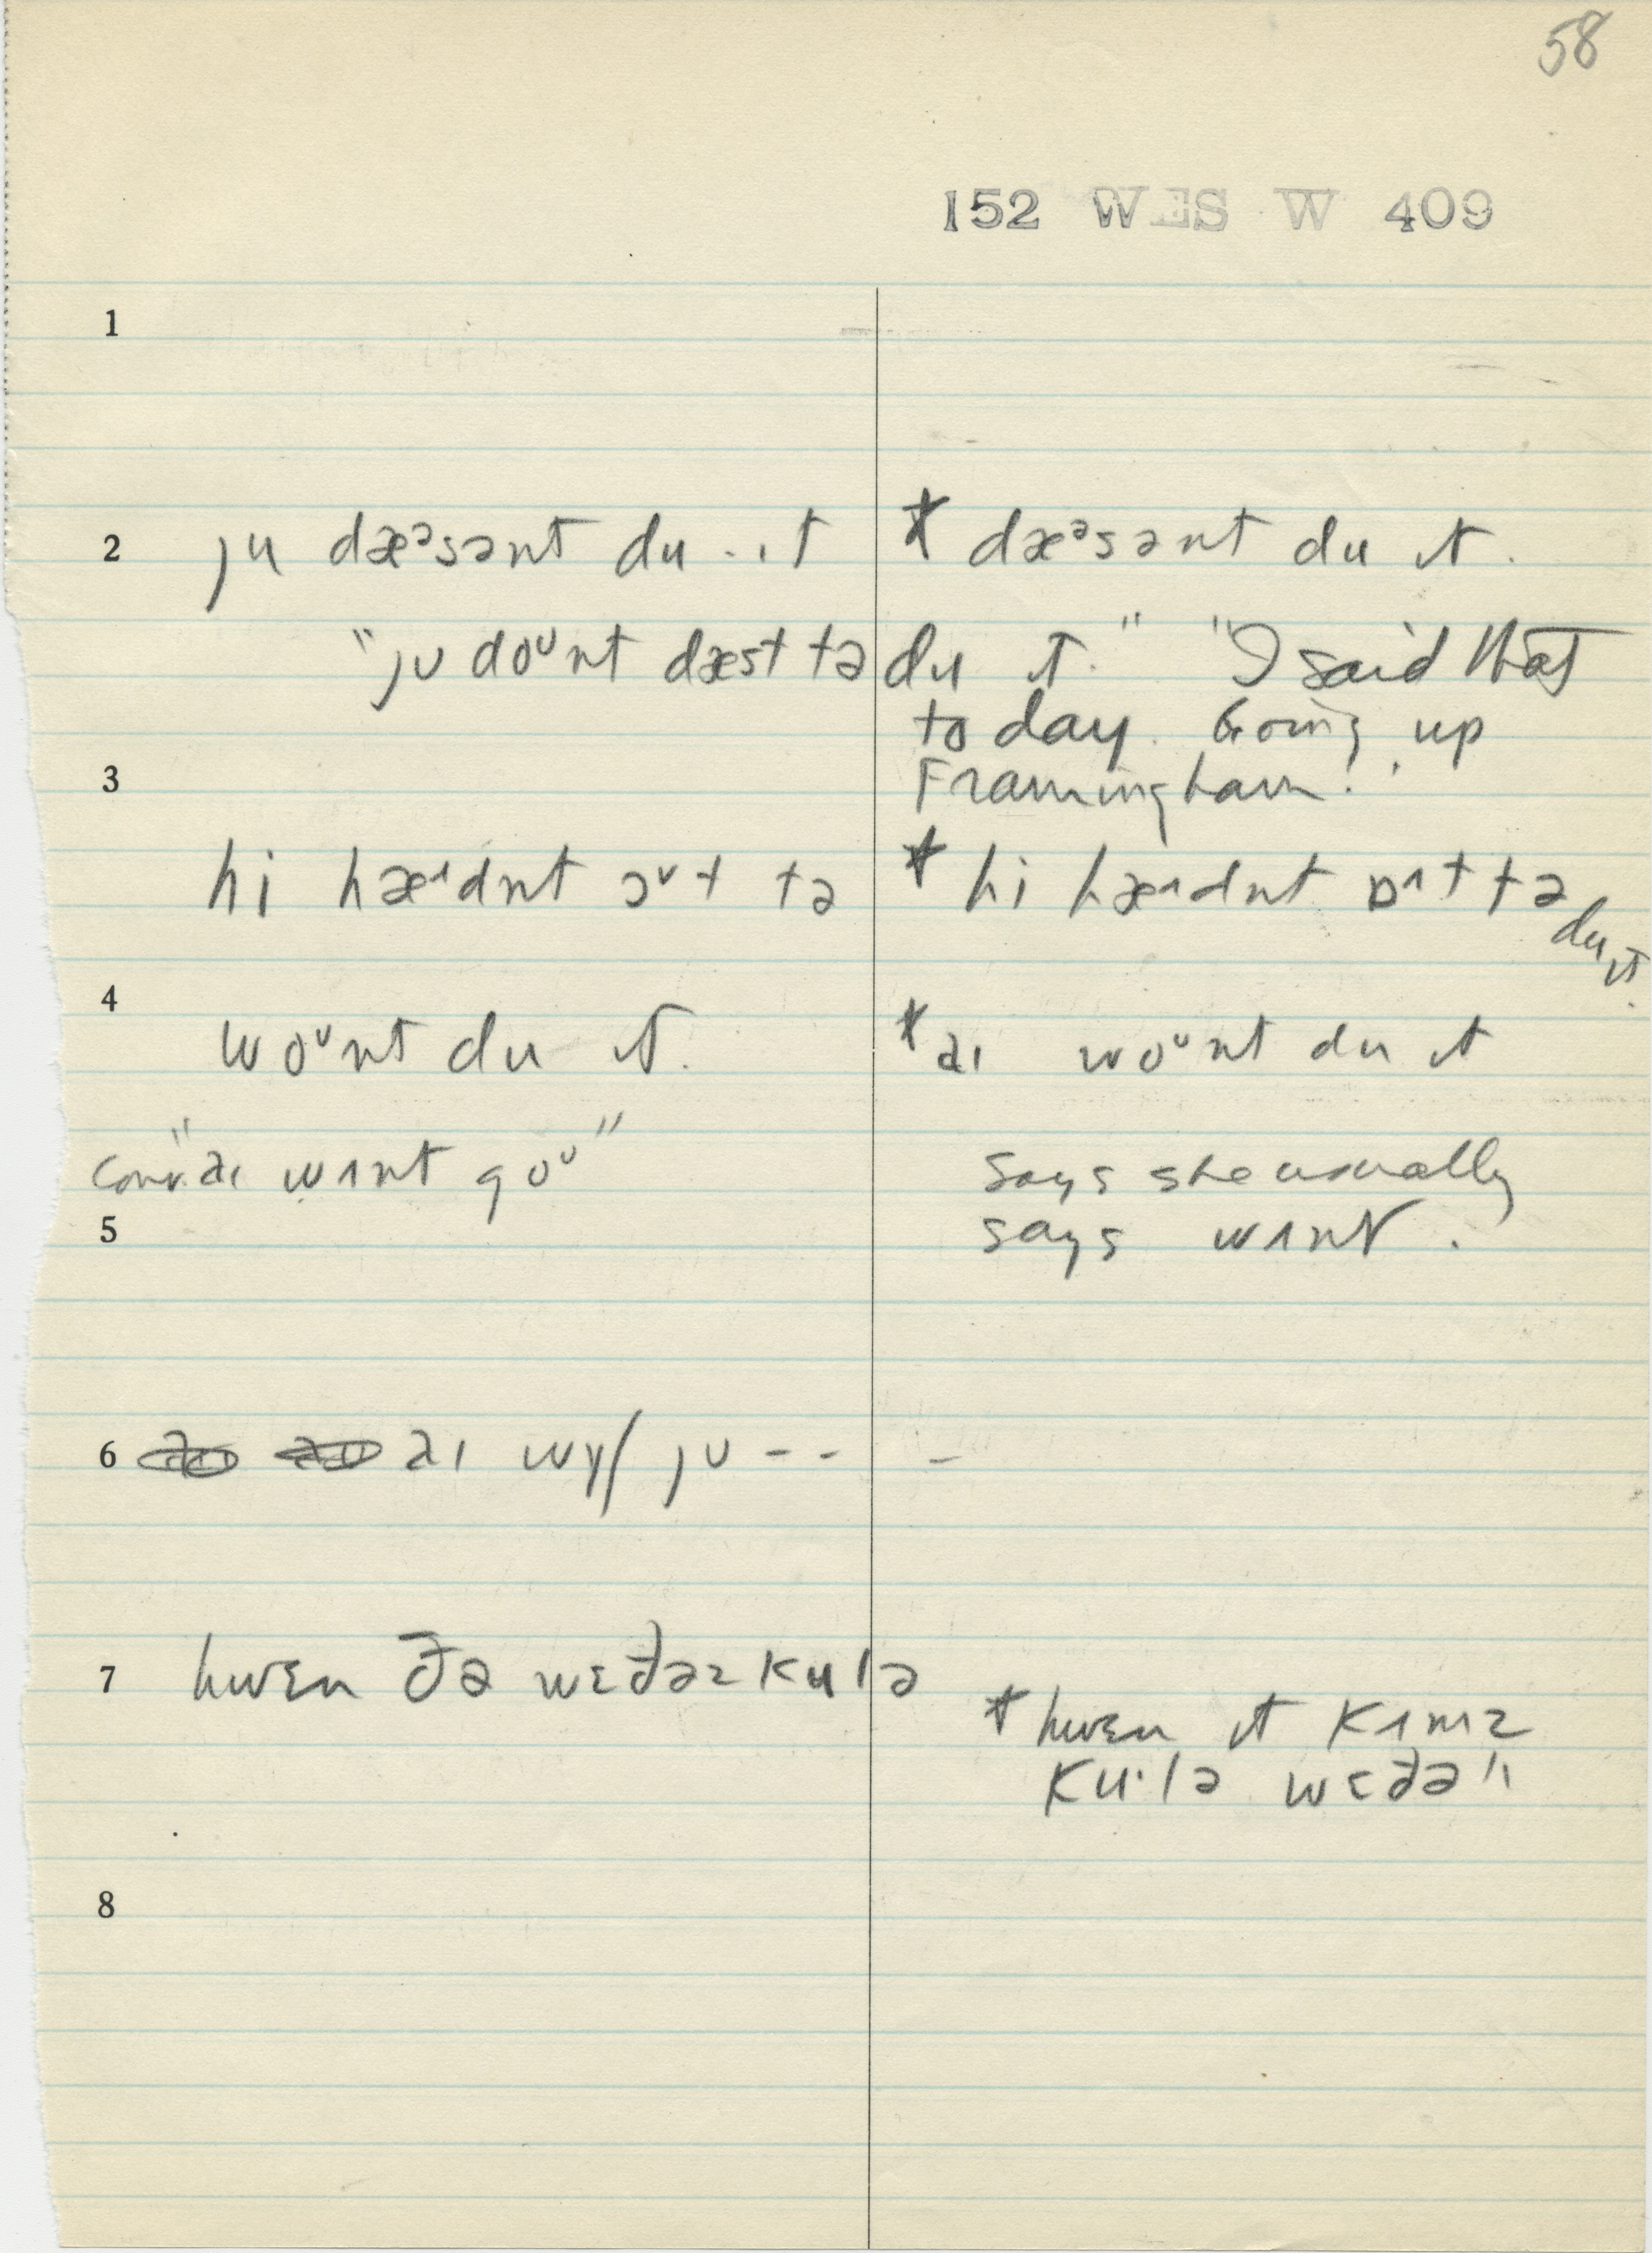 58
152 WES W 409
1
2 ju dæᵊsənt du - ɪt * dæᵊsənt du ɪt.
"jʊ doᵘnt dæst tə du ɪt." "I said that
today. Going up
3 Framingham."
hi hæˑdnt ɔᵛt tə * hi hæˑdnt ɒˑt tə du ɪt.
4
woᵘnt du ɪt. * aɪ woᵘnt du ɪt
conv. "aɪ wʌnt goᵘ" says she usually
5 says wʌnt.
6 aɪ wɪʃ jʊ - - -
7 hwɛn ðə wɛðəz kulə
* hwɛn ɪt kʌmz
kuˑlə wɛðə"
8